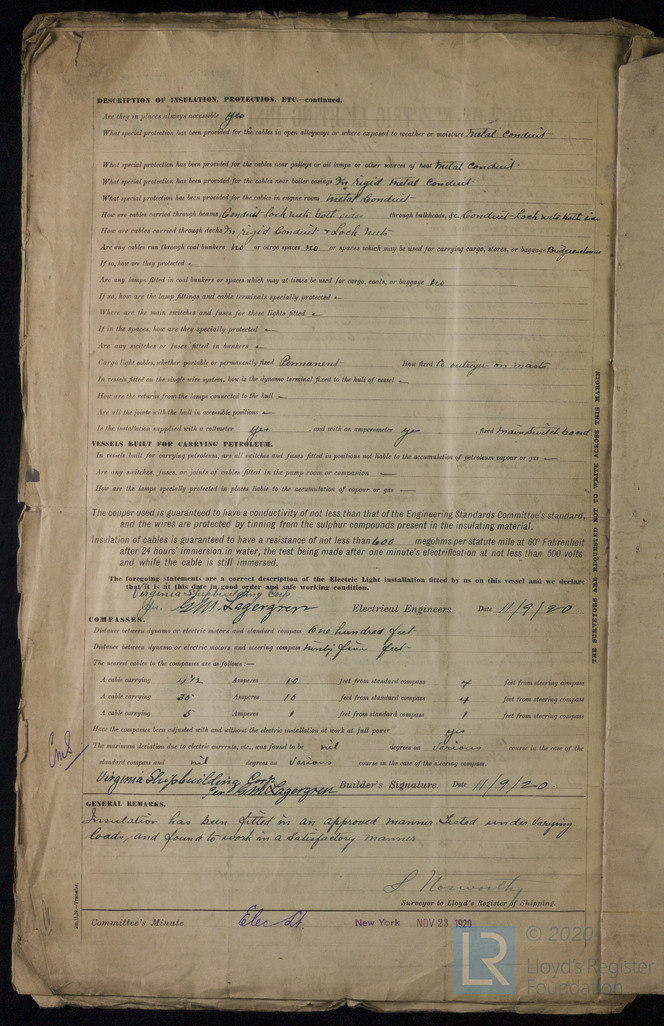 DESCRIPTION OF INSULATION, PROTECTION, ETC.—continued.
Are they in places always accessible yes
What special protection has been provided for the cables in open alleyways or where exposed to weather or moisture Metal Conduit
What special protection has been provided for the cables near galleys or oil lamps or other sources of heat Metal Conduit.
What special protection has been provided for the cables near boiler casings In rigid metal Conduit
What special protection has been provided for the cables in engine room Metal Conduit
How are cables carried through beams, Conduit Lock nuts both sides through bulkheads, &c. Conduit-Lock nuts both sides
How are cables carried through decks In rigid Conduit & Lock nuts
Are any cables run through coal bunkers no or cargo spaces no or spaces which may be used for carrying cargo, stores, or baggage
If so, how are they protected
Are any lamps fitted in coal bunkers or spaces which may at times be used for cargo, coals, or baggage No
If so, how are the lamp fittings and cable terminals specially protected
Where are the main switches and fuses for these lights fitted
If in the spaces, how are they specially protected
Are any switches or fuses fitted in bunkers
Cargo light cables, whether portable or permanently fixed Permanent How fixed outriger on masts
In vessels fitted on the single wire system, how is the dynamo terminal fixed to the hull of vessel
How are the returns from the lamps connected to the hull
Are all the joints with the hull in accessible positions
Is the installation supplied with a voltmeter yes , and with an amperemeter yes , fixed Main Switch board
VESSELS BUILT FOR CARRYING PETROLEUM.
In vessels built for carrying petroleum, are all switches and fuses fitted in positions not liable to the accumulation of petroleum vapour or gas —
Are any switches, fuses, or joints of cables fitted in the pump room or companion —
How are the lamps specially protected in places liable to the accumulation of vapour or gas —
The copper used is guaranteed to have a conductivity of not less than that of the Engineering Standards Committee's standard,
and the wires are protected by tinning from the sulphur compounds present in the insulating material.
Insulation of cables is guaranteed to have a resistance of not less than 600 megohms per statute mile at 60° Fahrenheit
after 24 hours' immersion in water, the test being made after one minute's electrification at not less than 500 volts
and while the cable is still immersed.
The foregoing statements are a correct description of the Electric Light installation fitted by us on this vessel and we declare
that it is at this date in good order and safe working condition.
Virginia Shipbuilding Corp
Per. G.M. Lagergren Electrical Engineers Date 11/9/20.
COMPASSES.
Distance between dynamo or electric motors and standard compass One hundred feet
Distance between dynamo or electric motors and steering compass Ninety five feet
The nearest cables to the compasses are as follows:—
A cable carrying 4½ Amperes 10 feet from standard compass 4 feet from steering compass
A cable carrying 35 Amperes 10 feet from standard compass 4 feet from steering compass
A cable carrying 5 Amperes 1 feet from standard compass 1 feet from steering compass
Have the compasses been adjusted with and without the electric installation at work at full power yes
The maximum deviation due to electric currents, etc., was found to be nil degrees on Various course in the case of the
standard compass and nil degrees on Various course in the case of the steering compass.
Virginia Shipbuilding Corp.
Per G.M. Lagergren Builder's Signature. Date 11/9/20.
GENERAL REMARKS.
Insulation has been fitted in an approved manner. Tested under varying
loads, and found to work in a satisfactory manner
Surveyor to Lloyd's Register of Shipping.
Committee's Minute Elec Lt. New York NOV 23 1920
THE SURVEYORS ARE REQUESTED NOT TO WRITE ACROSS THIS MARGIN.
LR © 2020
Lloyd's Register
Foundation